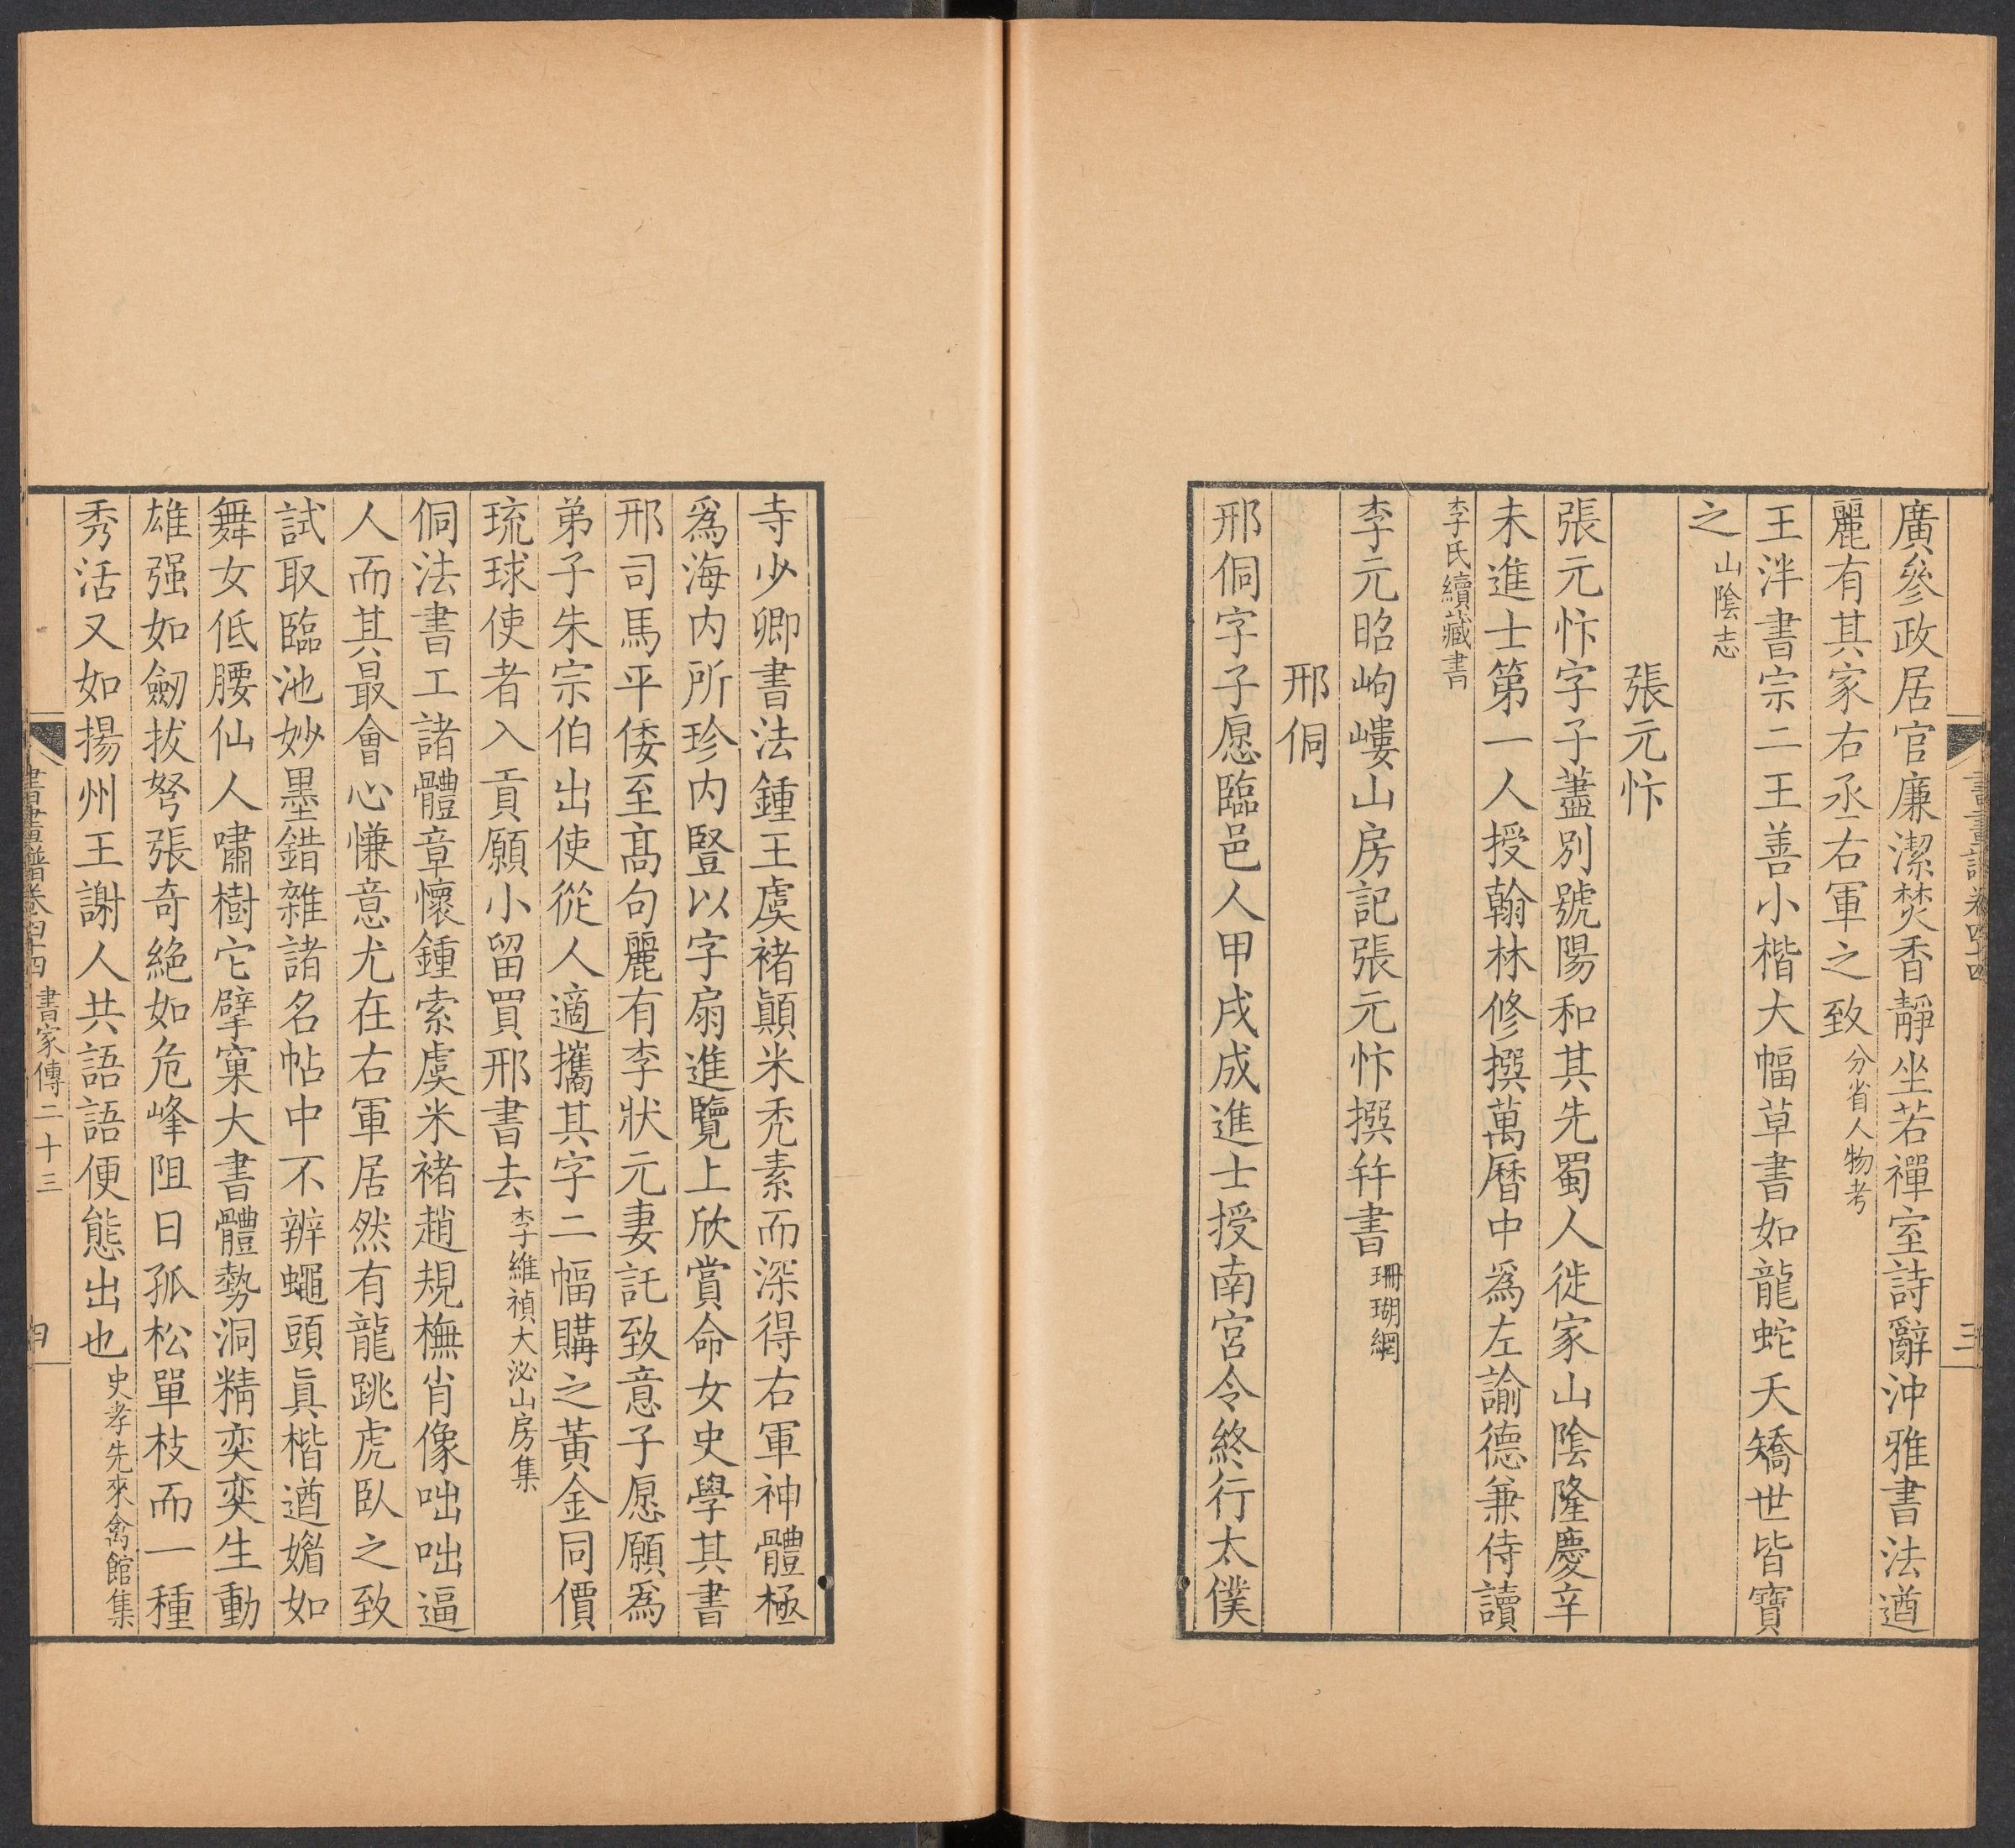 廣參政居官廉潔焚香靜坐若禪室詩辭沖雅書法遒
麗有其家右丞右軍之致分省人物考
王泮書宗二王善小楷大幅草書如龍蛇夭矯世皆寶
之山陰志
張元忭
張元忭字子藎別號陽和其先蜀人徙家山陰隆慶辛
未進士第一人授翰林修撰萬曆中爲左諭德兼侍讀
李氏續藏書
李元昭岣嶁山房記張元忭撰幷書珊瑚網
邢侗
邢侗字子愿臨邑人甲戌成進士授南宮令終行太僕
寺少卿書法鍾王虞褚顚米禿素而深得右軍神體極
爲海內所珍內豎以字扇進覽上欣賞命女史學其書
邢司馬平倭至高句麗有李狀元妻託致意子愿願爲
弟子朱宗伯出使從人適攜其字二幅購之黃金同價
琉球使者入貢願小留買邢書去李維禎大泌山房集
侗法書工諸體章懷鍾索虞米褚趙規橅肖像咄咄逼
人而其最會心慊意尤在右軍居然有龍跳虎臥之致
試取臨池妙墨錯雜諸名帖中不辨蠅頭眞楷遒媚如
舞女低腰仙人嘯樹它擘窠大書體勢洞精奕奕生動
雄强如劒拔弩張奇絶如危峰阻日孤松單枝而一種
秀活又如揚州王謝人共語語便態出也史孝先來禽館集
書畫譜卷四十四 書家傳二十三